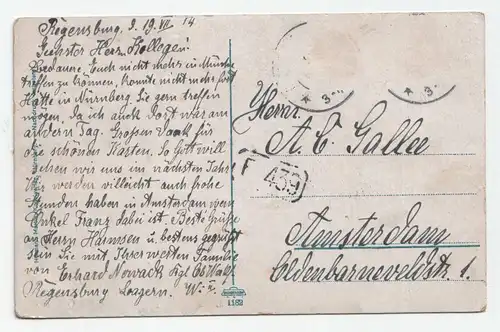 Regensburg, d. 19 VII 14
Geehrter Herr Kollege!
Bedaure Euch nicht mehr in München
treffen zu können, konnte nicht mehr fort
Hätte in Nürnberg Sie gern treffen
mögen, da ich auch dort war am
andern Tag. Großen Dank für
die schönen Karten. So Gott will
sehen wir uns im nächsten Jahr
Wir werden vielleicht auch frohe
Stunden haben in Amsterdam wenn
Onkel Franz dabei ist. Beste Grüße
an Herrn Harmsen u. bestens gegrüßt
sein Sie mit Ihrer werten Familie
von Erhard Nowack Kgl.
Regensburg Bayern.
Herrn
A. C. Gallee
Amsterdam
Oldenbarneveldstr. 1.
F 439
3
3